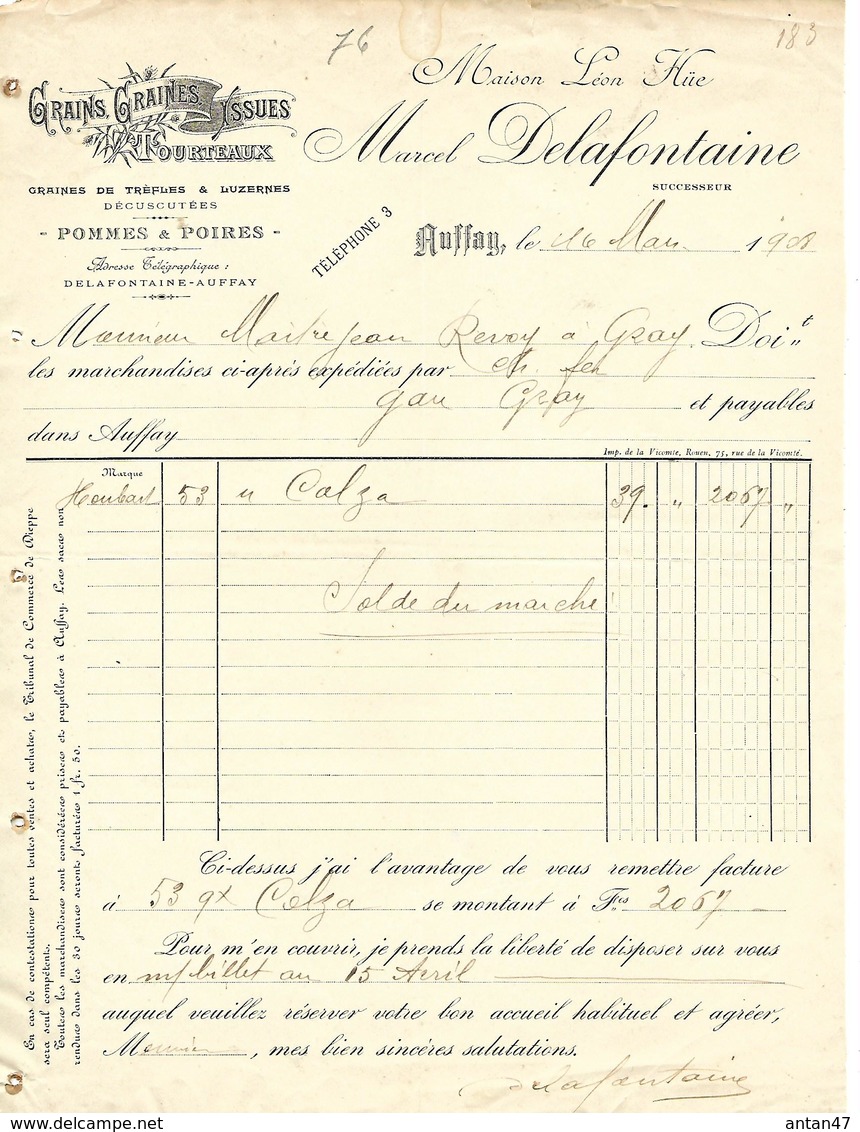 76
183
GRAINS, GRAINES, ISSUES
TOURTEAUX
GRAINES DE TRÈFLES & LUZERNES
DÉCUSCUTÉES
- POMMES & POIRES -
Adresse Télégraphique :
DELAFONTAINE-AUFFAY
TÉLÉPHONE 3
Maison Léon Hüe
Marcel Delafontaine
SUCCESSEUR
Auffay, le 16 Mars 1908
Monsieur Maitrejean Revoy à Gray. Doit
les marchandises ci-après expédiées par ch. fer
gare Gray et payables
dans Auffay
Imp. de la Vicomté, Rouen, 75, rue de la Vicomté.
Marque
53 " Colza 39. " 2067 "
Solde du marché
Ci-dessus j'ai l'avantage de vous remettre facture
à 53 qx Colza se montant à Fcs 2067
Pour m'en couvrir, je prends la liberté de disposer sur vous
en m/ billet au 15 Avril
auquel veuillez réserver votre bon accueil habituel et agréer,
Monsieur, mes bien sincères salutations.
Delafontaine
En cas de contestations pour toutes ventes et achats, le Tribunal de Commerce de Dieppe
sera seul compétent.
Toutes les marchandises sont considérées prises et payables à Auffay. Les sacs non
rendus dans les 30 jours seront facturés 1 fr. 50.
antan47